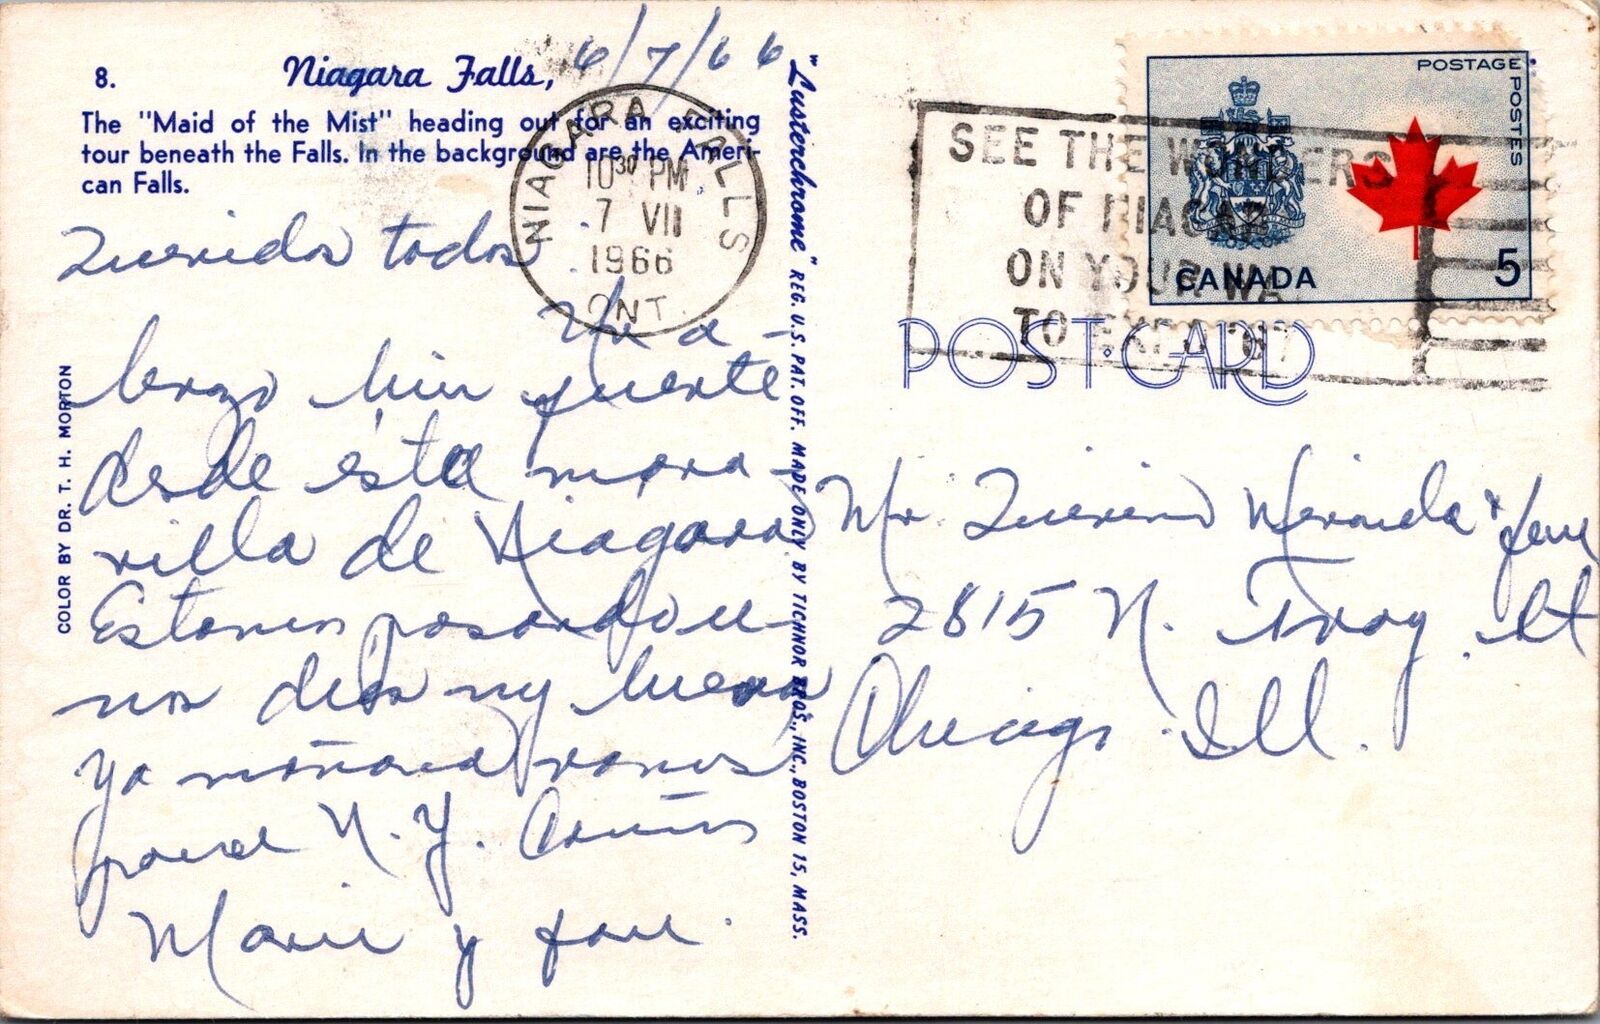 8. Niagara Falls,
6/7/66
The "Maid of the Mist" heading out for an exciting
tour beneath the Falls. In the background are the Ameri-
can Falls.
Queridos todos
Un a-
brazo bien fuerte
desde ésta mara-
villa de Niagara
Estamos pasando u-
nos dias muy buenos
ya mañana vamos
para N.Y. Cariños
Marie y fam.
COLOR BY DR. T. H. MORTON
"Lusterchrome" REG. U.S. PAT. OFF. MADE ONLY BY TICHNOR BROS., INC., BOSTON 15, MASS.
NIAGARA FALLS
10 30 PM
7 VII
1966
ONT.
SEE THE WONDERS
OF NIAGARA
ON YOUR WAY
TO EXPO '67
POSTAGE
POSTES
CANADA 5
POST CARD
Mr. Querino & fam
2815 N. Troy St
Chicago Ill.